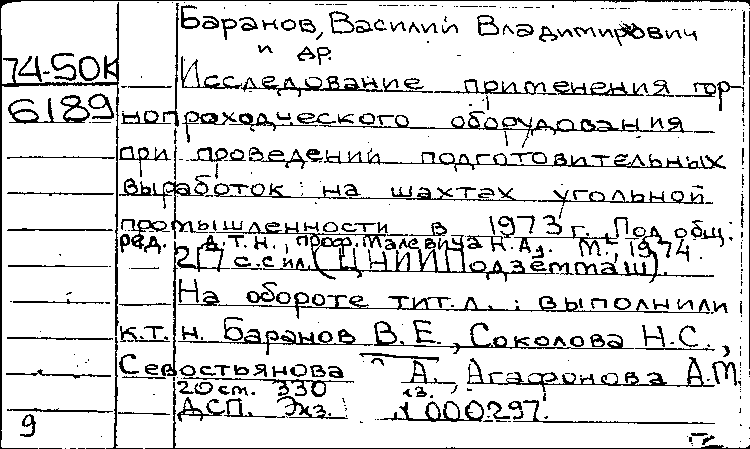 Баранов, Василий Владимирович
и др.
74-50К
Исследование применения гор-
6189
нопроходческого оборудования
при проведении подготовительных
выработок на шахтах угольной
промышленности в 1973 г. Под общ.
ред. д.т.н., проф. Малевича Н.А. М., 1974.
217 с. с ил. (ЦНИИПодземмаш).
На обороте тит.л.: выполнили
к.т.н. Баранов В.Е., Соколова Н.С.,
Севостьянова А., Агафонова А.М.
20 см. 330 экз.
ДСП. Экз. 000297.
9